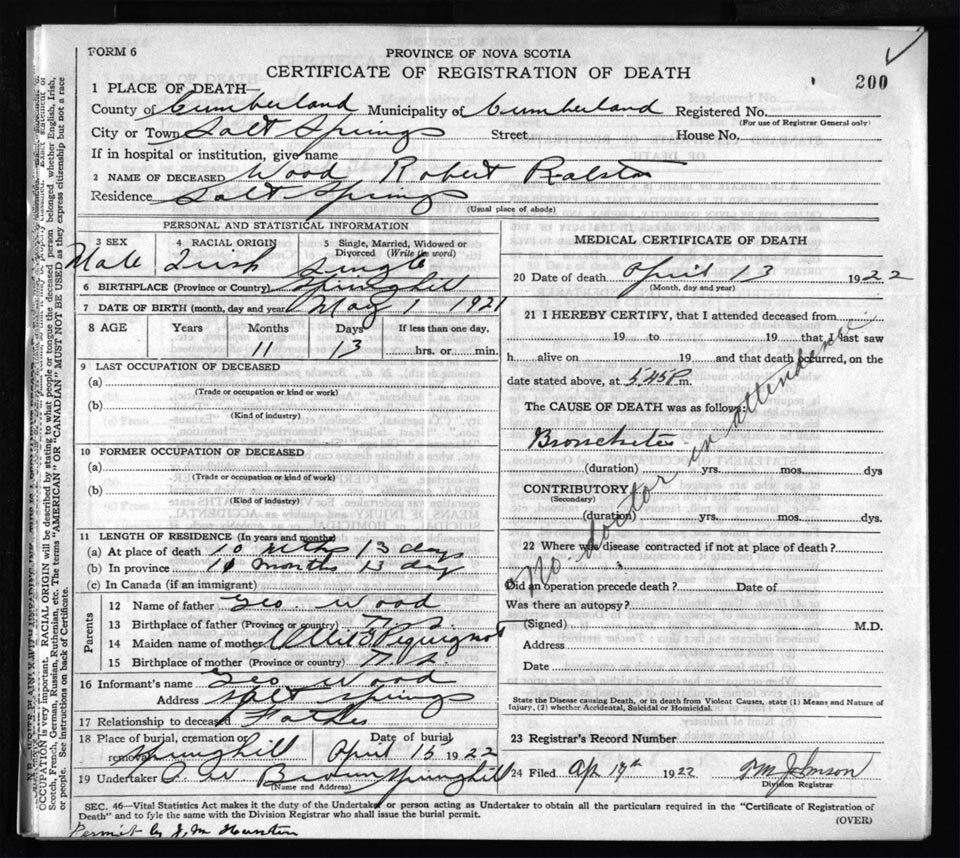 FORM 6
PROVINCE OF NOVA SCOTIA
CERTIFICATE OF REGISTRATION OF DEATH
200
1 PLACE OF DEATH—
County of Cumberland Municipality of Cumberland Registered No.
(For use of Registrar General only)
City or Town Salt Springs Street House No.
If in hospital or institution, give name
2 NAME OF DECEASED Wood Robert Ralston
Residence Salt Springs
(Usual place of abode)
PERSONAL AND STATISTICAL INFORMATION
3 SEX 4 RACIAL ORIGIN 5 Single, Married, Widowed or Divorced (Write the word)
Male Irish Single
6 BIRTHPLACE (Province or Country) Springhill
7 DATE OF BIRTH (month, day and year) May 1 1921
8 AGE Years Months Days If less than one day,
11 13 hrs. or min.
9 LAST OCCUPATION OF DECEASED
(a)
(Trade or occupation or kind or work)
(b)
(Kind of industry)
10 FORMER OCCUPATION OF DECEASED
(a)
(Trade or occupation or kind of work)
(b)
(Kind of industry)
11 LENGTH OF RESIDENCE (In years and months)
(a) At place of death 10 mths 13 days
(b) In province months 13 day
(c) In Canada (if an immigrant)
Parents
12 Name of father Geo. Wood
13 Birthplace of father (Province or country) N S
14 Maiden name of mother Pequignot
15 Birthplace of mother (Province or country) N S
16 Informant's name Geo Wood
Address Salt Springs
17 Relationship to deceased Father
18 Place of burial, cremation or removal Date of burial
Springhill April 15 1922
19 Undertaker Brown Springhill
(Name and Address)
MEDICAL CERTIFICATE OF DEATH
20 Date of death April 13 1922
(Month, day and year)
21 I HEREBY CERTIFY, that I attended deceased from
19 to 19 that I last saw
h alive on 19 and that death occurred, on the
date stated above, at 5.45 P m.
The CAUSE OF DEATH was as follows:
Bronchitis
(duration) yrs. mos. dys
CONTRIBUTORY
(Secondary)
(duration) yrs. mos. dys.
No doctor in attendance
22 Where was disease contracted if not at place of death?
Did an operation precede death? Date of
Was there an autopsy?
(Signed) M.D.
Address
Date
State the Disease causing Death, or in death from Violent Causes, state (1) Means and Nature of
Injury, (2) whether Accidental, Suicidal or Homicidal.
23 Registrar's Record Number
24 Filed Apr 17th 1922 Johnson
Division Registrar
SEC. 46—Vital Statistics Act makes it the duty of the Undertaker or person acting as Undertaker to obtain all the particulars required in the "Certificate of Registration of
Death" and to fyle the same with the Division Registrar who shall issue the burial permit.
(OVER)
Permit by J. M.
OCCUPATION is very important. RACIAL ORIGIN will be described by stating to what people or tongue the deceased person belonged whether English, Irish,
Scotch, French, German, Russian, Ruthenian, etc. The terms "AMERICAN" OR "CANADIAN" MUST NOT BE USED as they express citizenship but not a race
or people. See instructions on back of Certificate.